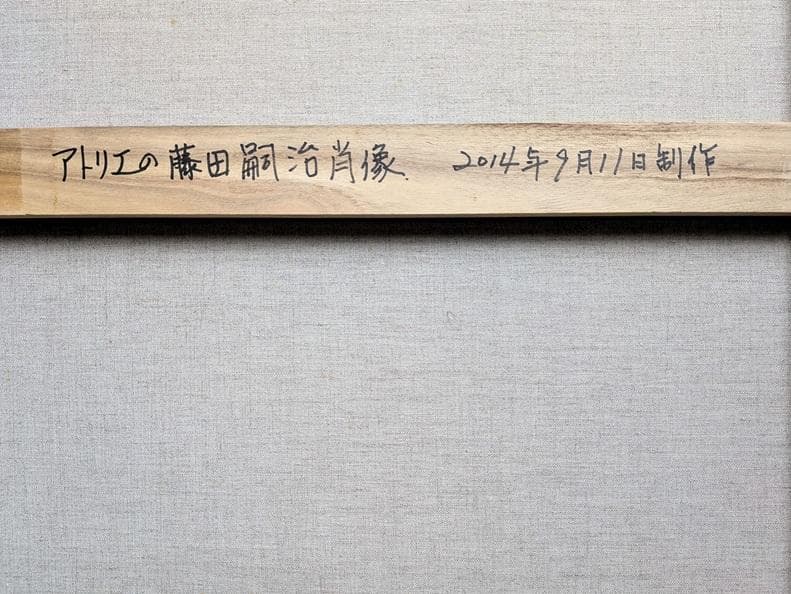 アトリエの藤田嗣治肖像. 2014年9月11日制作